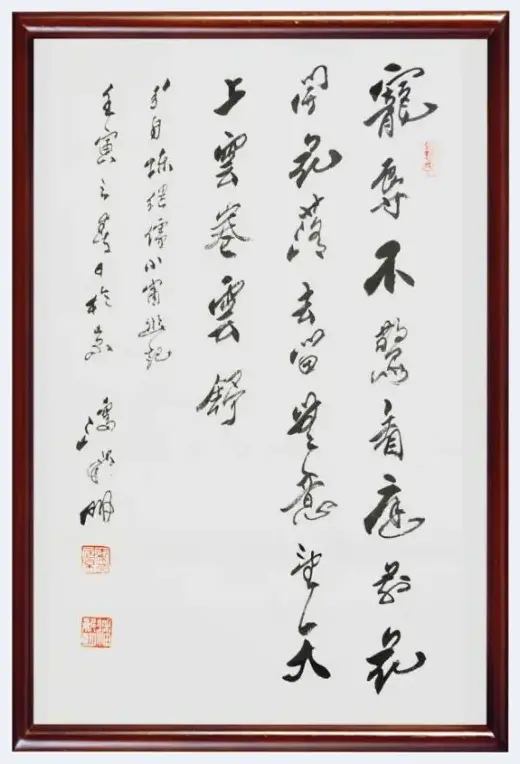 寵辱不驚看庭前花
開花落去留無意望天
上雲卷雲舒
引自陳继儒小窗幽記
壬寅之春日於京